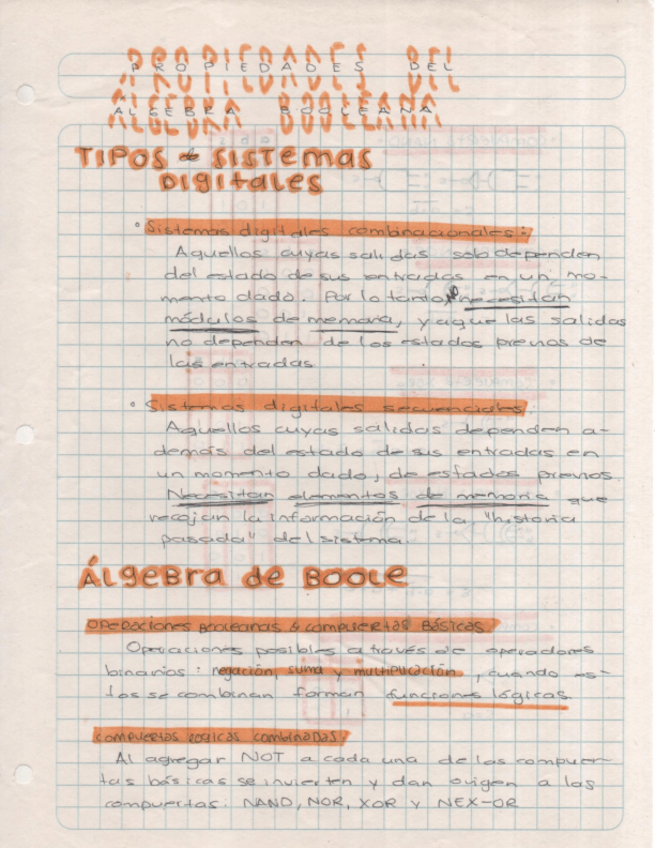 PROPIEDADES DEL
ÁLGEBRA BOOLEANA
TIPOS de SISTEMAS
DIGITALES
• Sistemas digitales combinacionales:
Aquellos cuyas salidas solo dependen
del estado de sus entradas en un mo-
mento dado. Por lo tanto, NO necesitan
módulos de memoria, ya que las salidas
no dependen de los estados previos de
las entradas.
• Sistemas digitales secuenciales:
Aquellos cuyas salidas dependen a-
demás del estado de sus entradas en
un momento dado, de estados previos.
Necesitan elementos de memoria que
recojan la información de la "historia
pasada" del sistema.
ÁLGEBRA de BOOLE
OPERACIONES BOOLEANAS & COMPUERTAS BÁSICAS
Operaciones posibles a través de operadores
binarios: negación, suma y multiplicación, cuando es-
tos se combinan forman funciones lógicas.
COMPUERTAS LOGICAS COMBINADAS:
Al agregar NOT a cada una de las compuer-
tas básicas se invierten y dan origen a las
compuertas: NAND, NOR, XOR Y NEX-OR